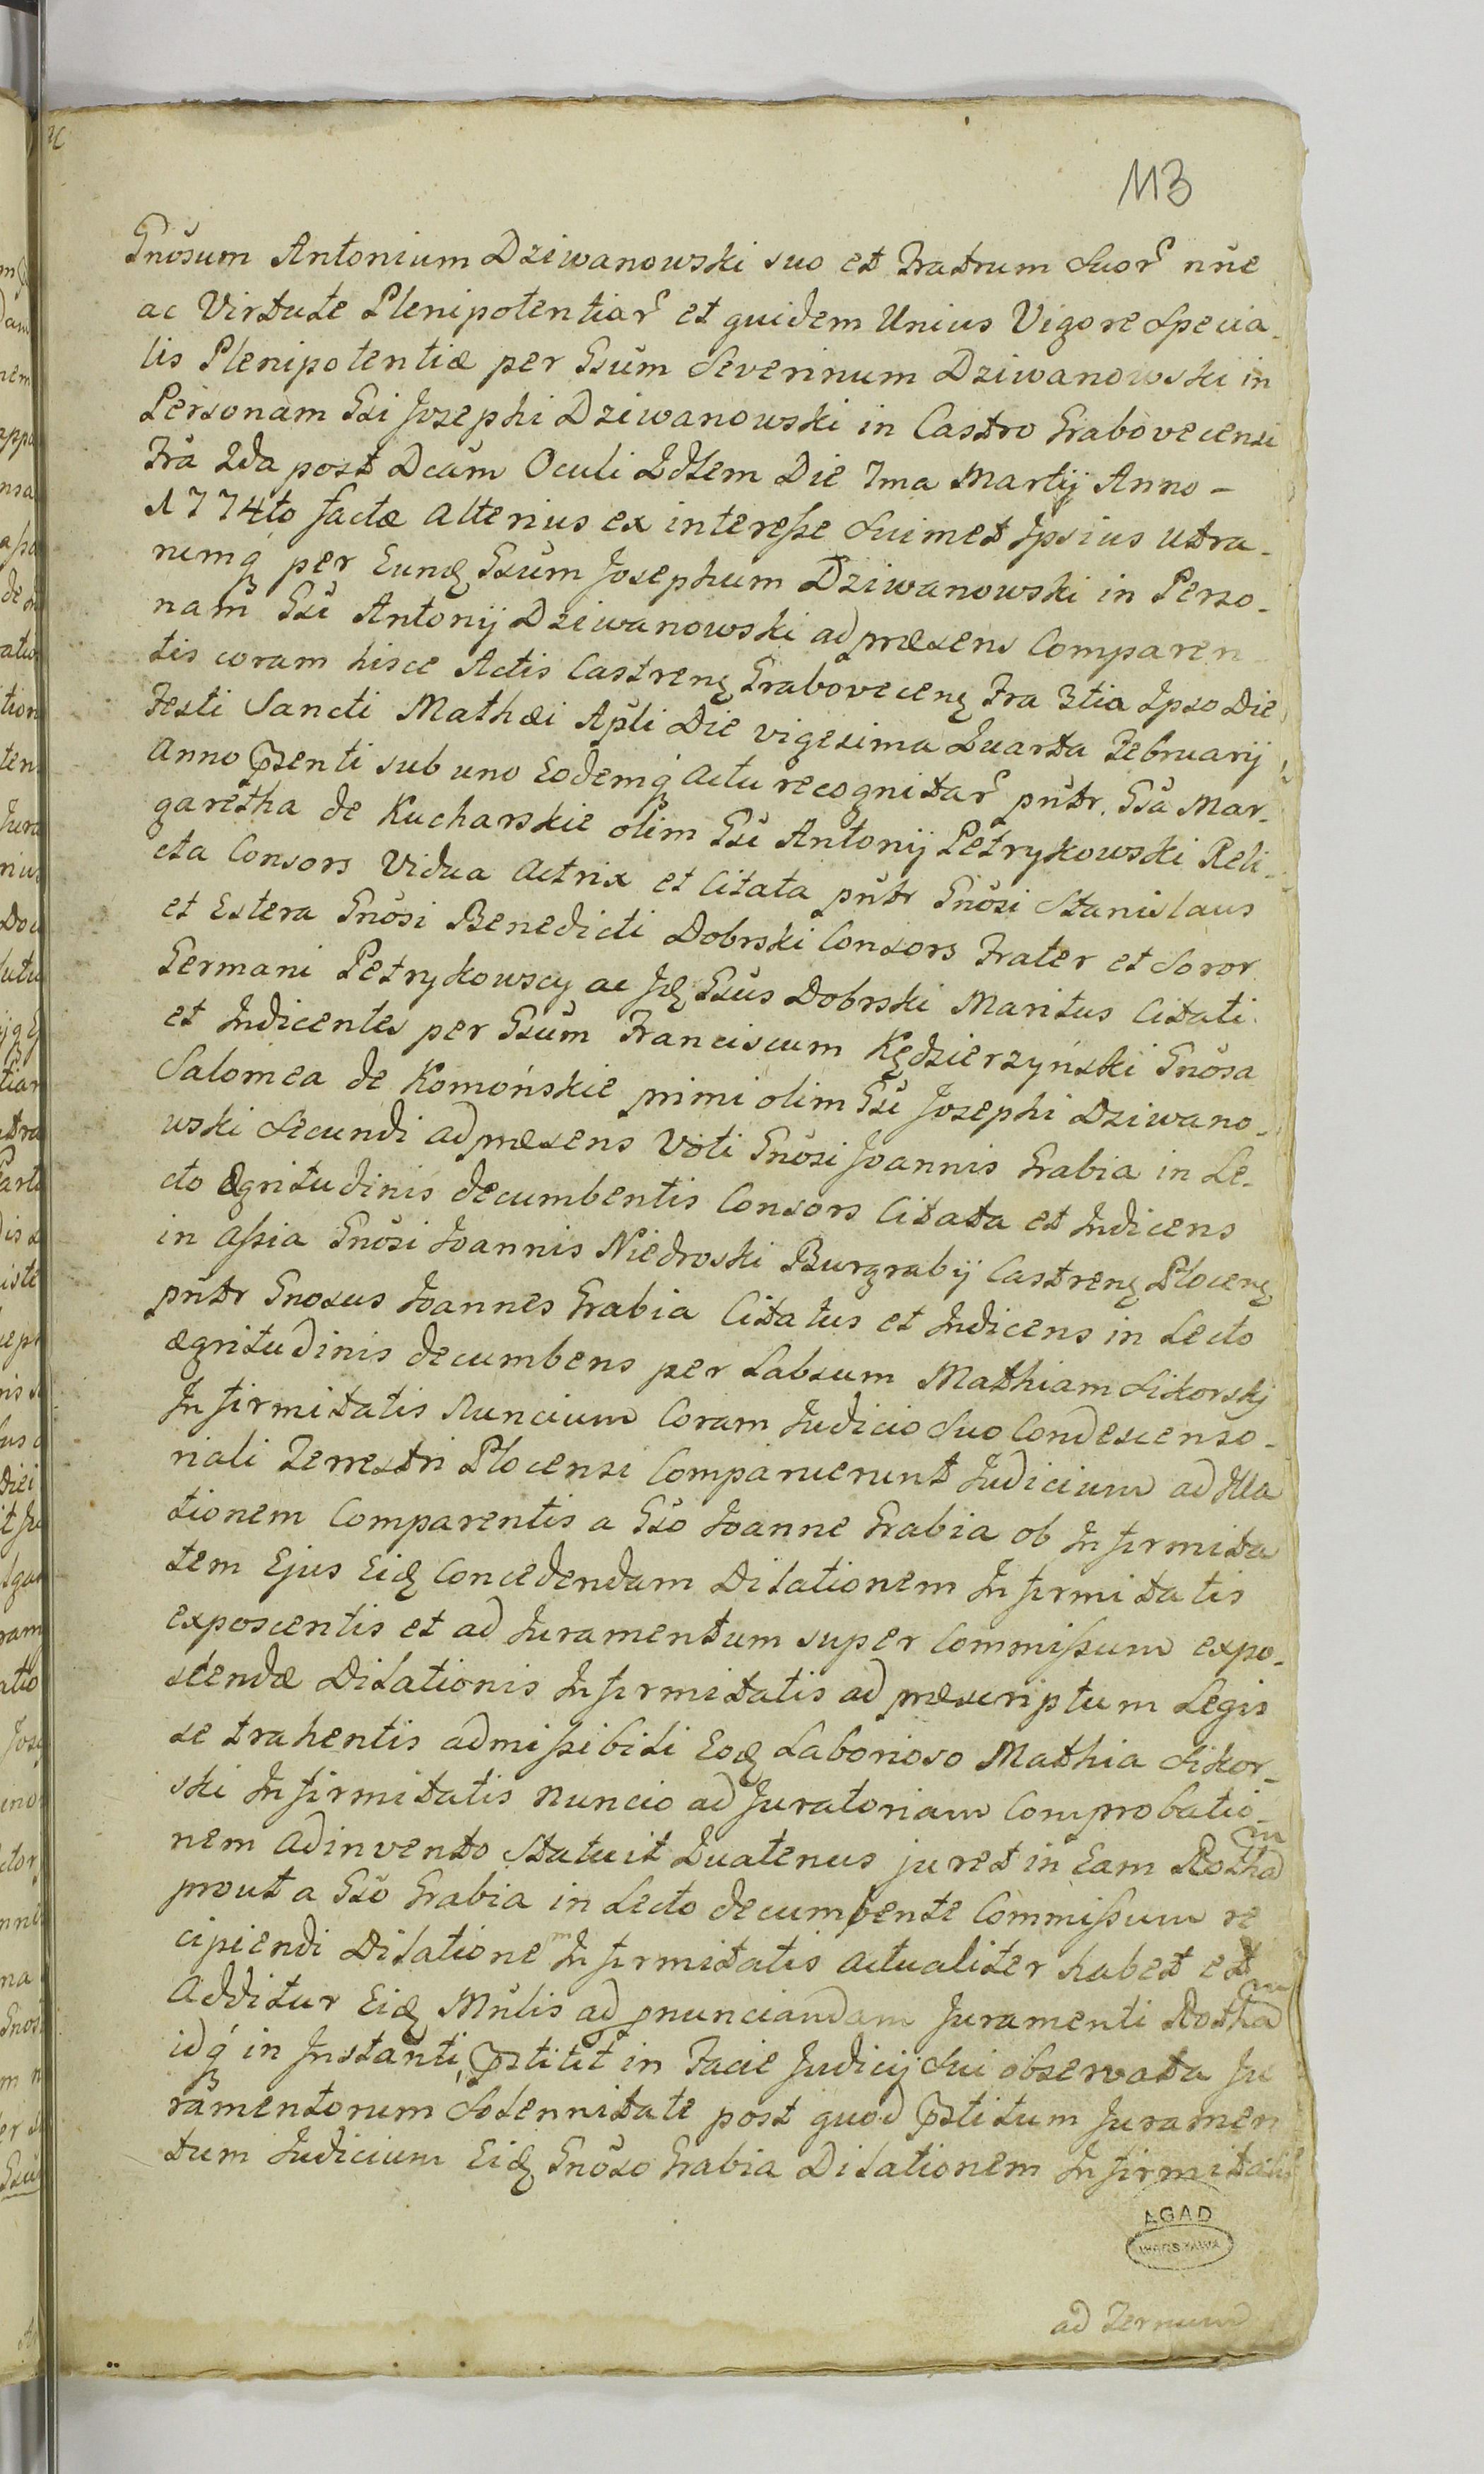 113
Gnõsum Antonium Dziwanowski suo et Fratrum Suor̃ nñe
ac Virtute Plenipotentiar̃ et quidem Unius Vigore Specia-
lis Plenipotentiæ per Gsum Severinum Dziwanowski in
Personam Gsi Josephi Dziwanowski in Castro Grabovecensi
Fra 2da post Dcãm Oculi Qdlem Die 7ma Martij Anno -
1774to factæ Alterius ex interesse Suimet Ipsius Utra-
rumq́ per Eundꝫ Gsum Josephum Dziwanowski in Perso-
nam Gsi Antonij Dziwanowski ad præsens Comparen-
tis coram hisce Actis Castrenꝫ Grabovecenꝫ Fra 3tia Ipso Die
Festi Sancti Mathæi Apli Die vigesima Quarta Februarij
Anno p̃senti sub uno Eodemq́ Actu recognitar̃ pñtr. Gsa Mar-
garetha de Kucharskie olim Gsi Antonij Petrykowski Reli-
cta Consors Vidua Actrix et Citata pñtr Gnõsi Stanislaus
et Estera Gnõsi Benedicti Dobrski Consors Frater et Soror
Germani Petrykowscy ac Jdꝫ Gsus Dobrski Maritus Citati
et Indicentes per Gsum Franciscum Kędzierzyński Gnõsa
Salomea de Komońskie primi olim Gsi Josephi Dziwano-
wski Secundi ad præsens Voti Gnõsi Joannis Grabia in Le-
cto Ægritudinis decumbentis Consors Citata et Indicens
in Assia Gnõsi Joannis Niedroski Burgrabij Castrenꝫ Plocenꝫ
pñtr Gnosus Joannes Grabia Citatus et Indicens in Lecto
ægritudinis decumbens per Labsum Mathiam Sikorskj
Infirmitatis Nuncium Coram Judicio Suo Condescenso-
riali Terrestri Plocensi Comparuerunt Judicium ad Illa
tionem Comparentis a Gso Joanne Grabia ob Infirmita
tem Ejus Eidꝫ Concedendam Dilationem Infirmitatis
exposcentis et ad Juramentum super Commissum expo-
scendæ Dilationis Infirmitatis ad præscriptum Legis
se trahentis admissibili Eodꝫ Laborioso Mathia Sikor-
ski Infirmitatis Nuncio ad Juratoriam Comprobatio-
nem Adinvento Statuit Quatenus juret in Eam Rotham
prout a Gso Grabia in Lecto decumbente Commissum re
cipiendi Dilationem Infirmitatis actualiter habet et
Additur Eidꝫ Mnlis ad pnunciandam Juramenti Rotham
idq́ in Instanti p̃stitit in Facie Judicij Sui observata Ju
ramentorum Solennitate post quod p̃stitum Juramen
tum Judicium Eidꝫ Gnõso Grabia Dilationem Infirmitatis
AGAD
WARSZAWA
ad Zernum